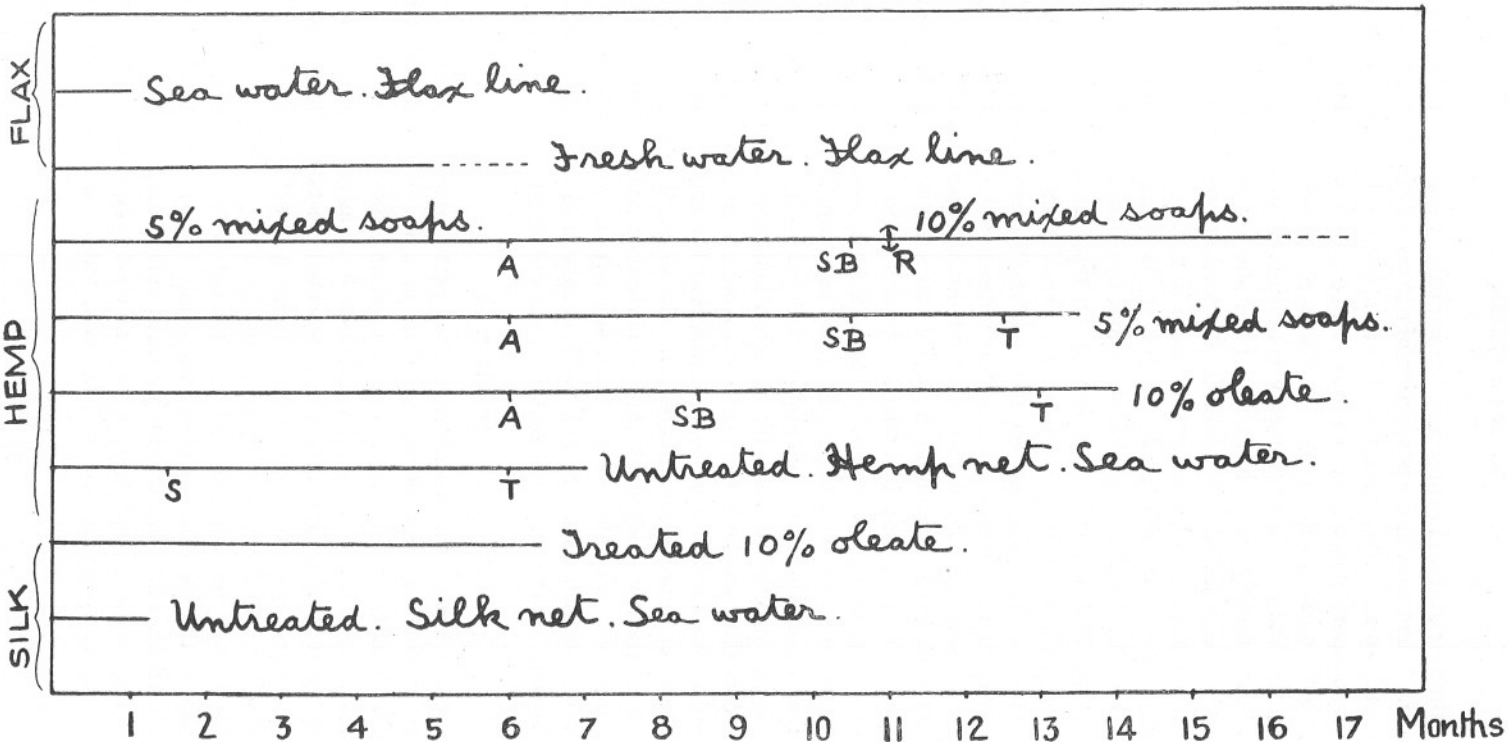 FLAX
Sea water. Flax line.
Fresh water. Flax line.
HEMP
5% mixed soaps.
10% mixed soaps.
A SB R
5% mixed soaps.
A SB T
10% oleate.
A SB T
Untreated. Hemp net. Sea water.
S T
SILK
Treated 10% oleate.
Untreated. Silk net. Sea water.
1 2 3 4 5 6 7 8 9 10 11 12 13 14 15 16 17 Months